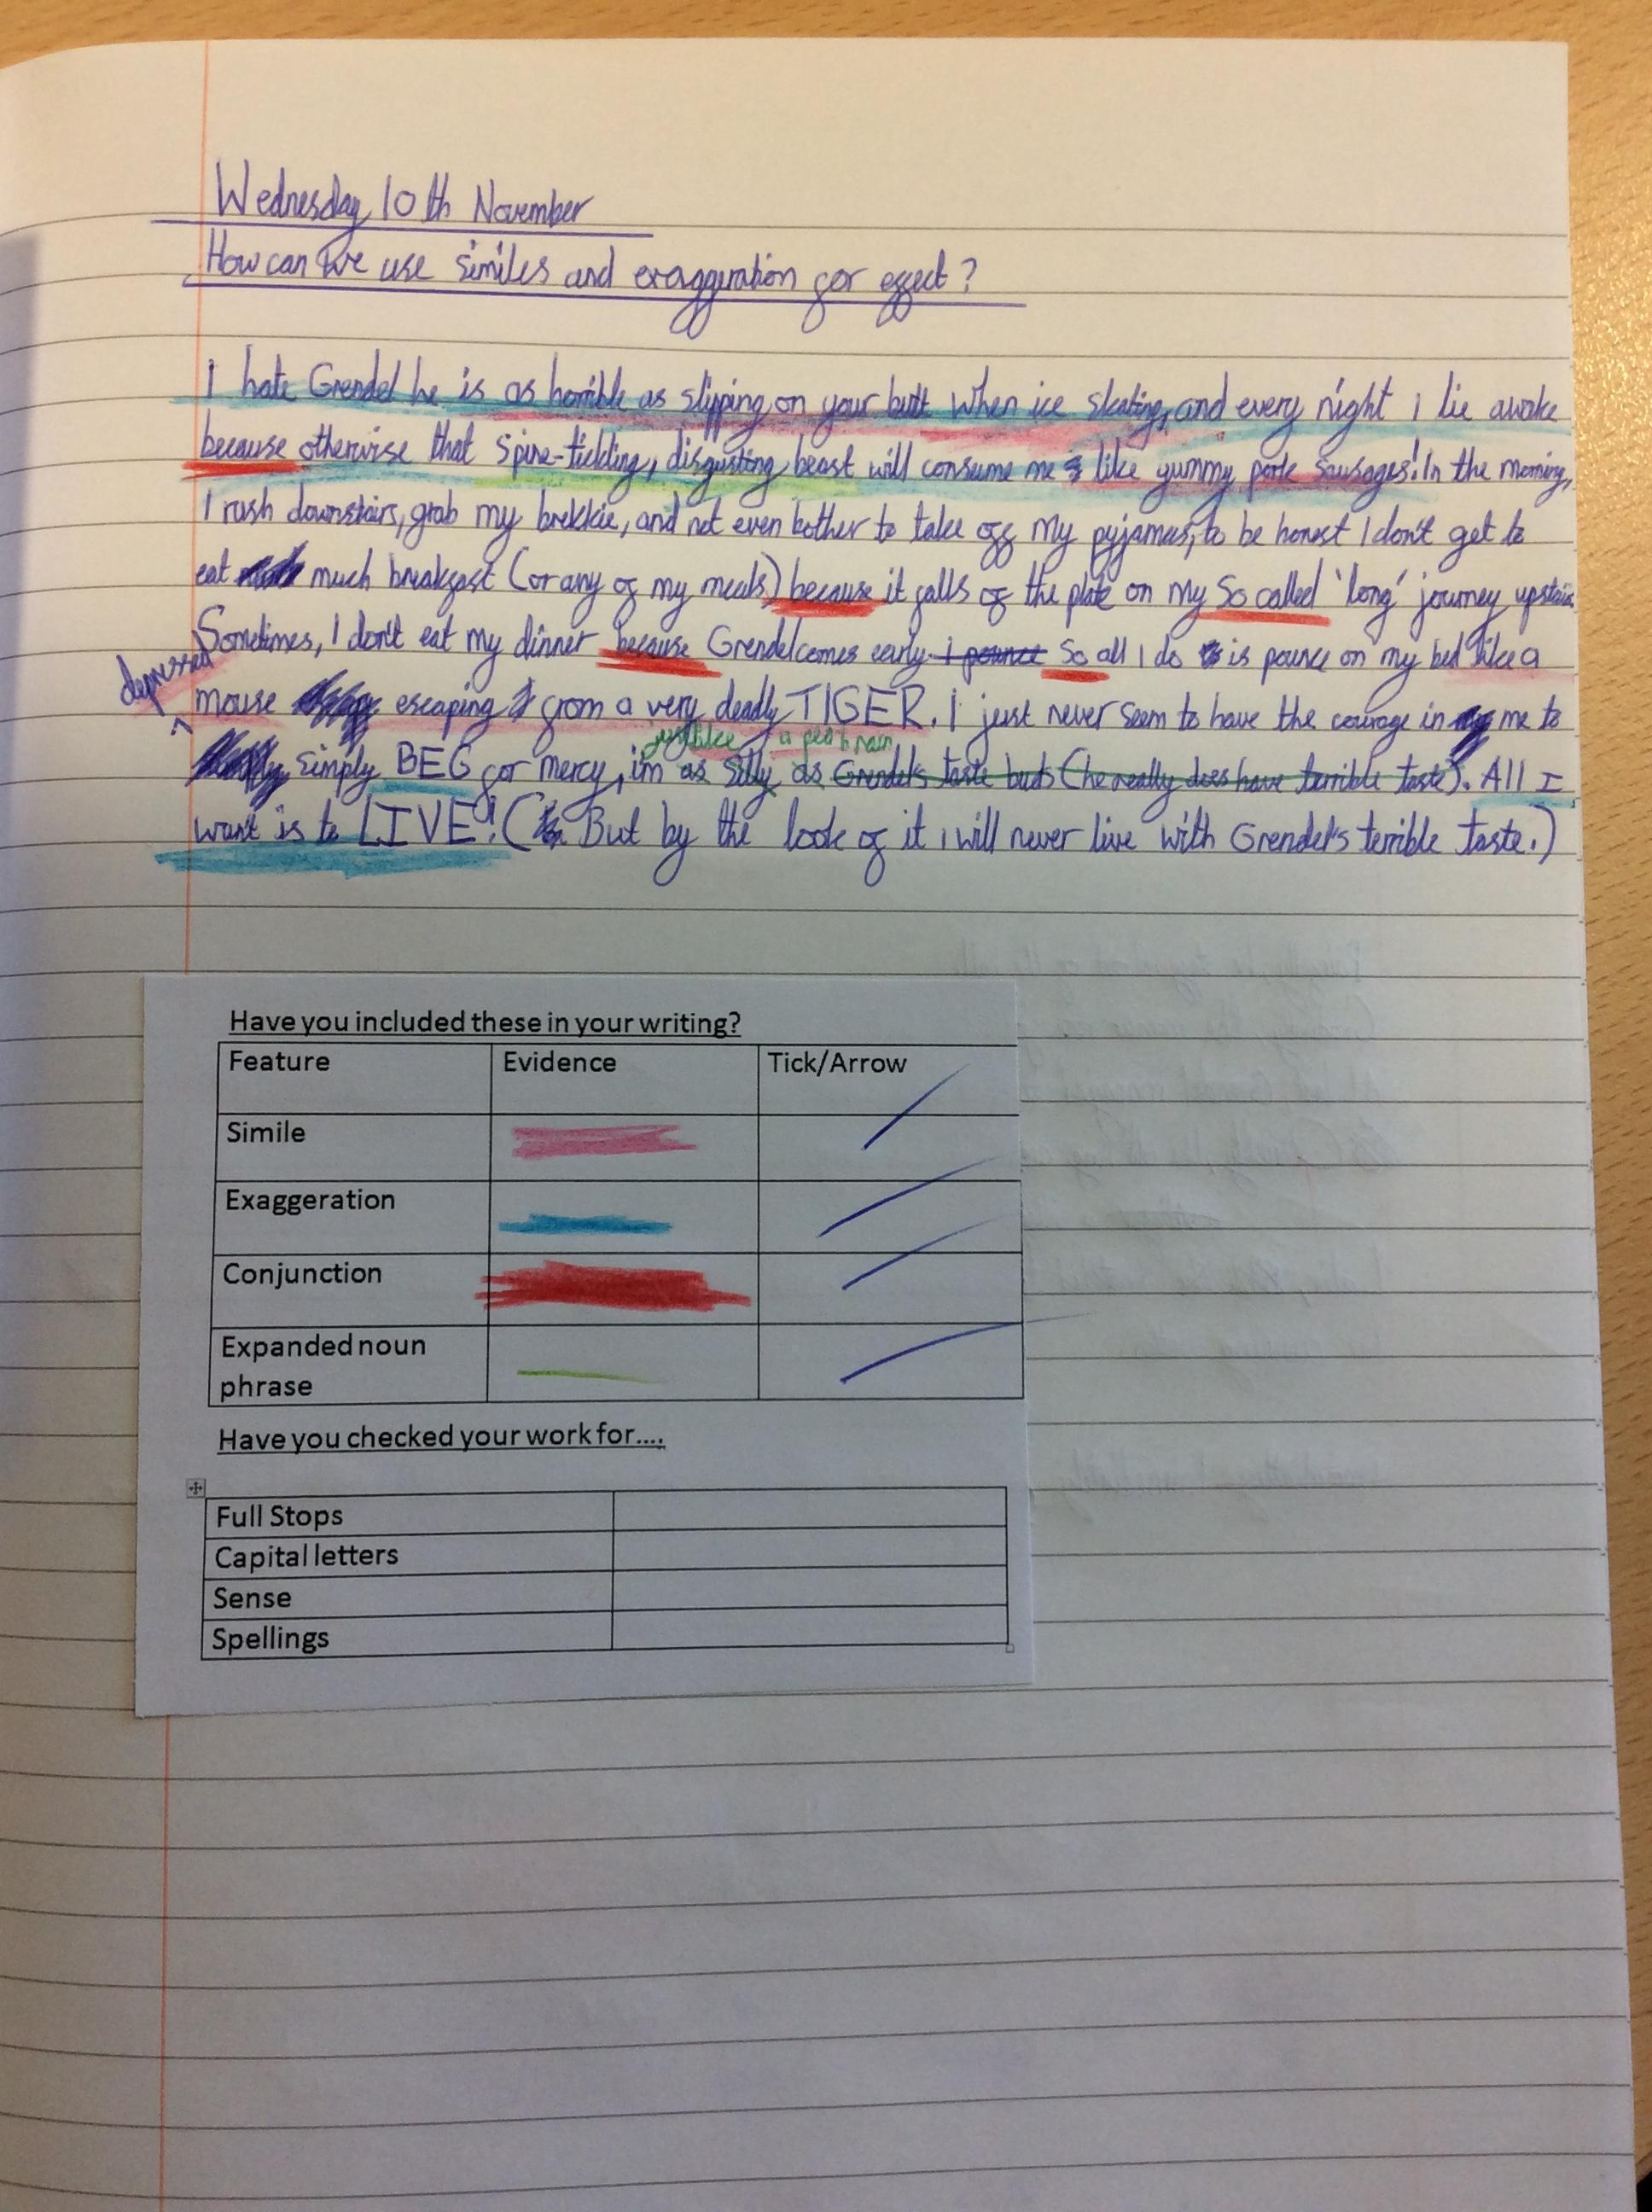 Wednesday 10th November
How can we use similes and exaggeration for effect?
I hate Grendel he is as horrible as slipping on your butt when ice skating, and every night i lie awake
because otherwise that spine-tickling, disgusting beast will consume me like yummy pork sausages! In the morning,
I rush downstairs, grab my brekkie, and not even bother to take off my pyjamas, to be honest I don't get to
eat much breakfast (or any of my meals) because it falls of the plate on my so called 'long' journey upstairs.
Sometimes, I don't eat my dinner because Grendel comes early. i pounce So all I do is pounce on my bed like a
depressed
mouse escaping from a very deadly TIGER. I just never seem to have the courage in me to
just like a pea brain
simply BEG for mercy, i'm as silly as Grendel's taste buds (he really does have terrible taste). All I
want is to LIVE! (But by the look of it i will never live with Grendel's terrible taste.)
Have you included these in your writing?
Feature Evidence Tick/Arrow
Simile
Exaggeration
Conjunction
Expanded noun
phrase
Have you checked your work for....
Full Stops
Capital letters
Sense
Spellings